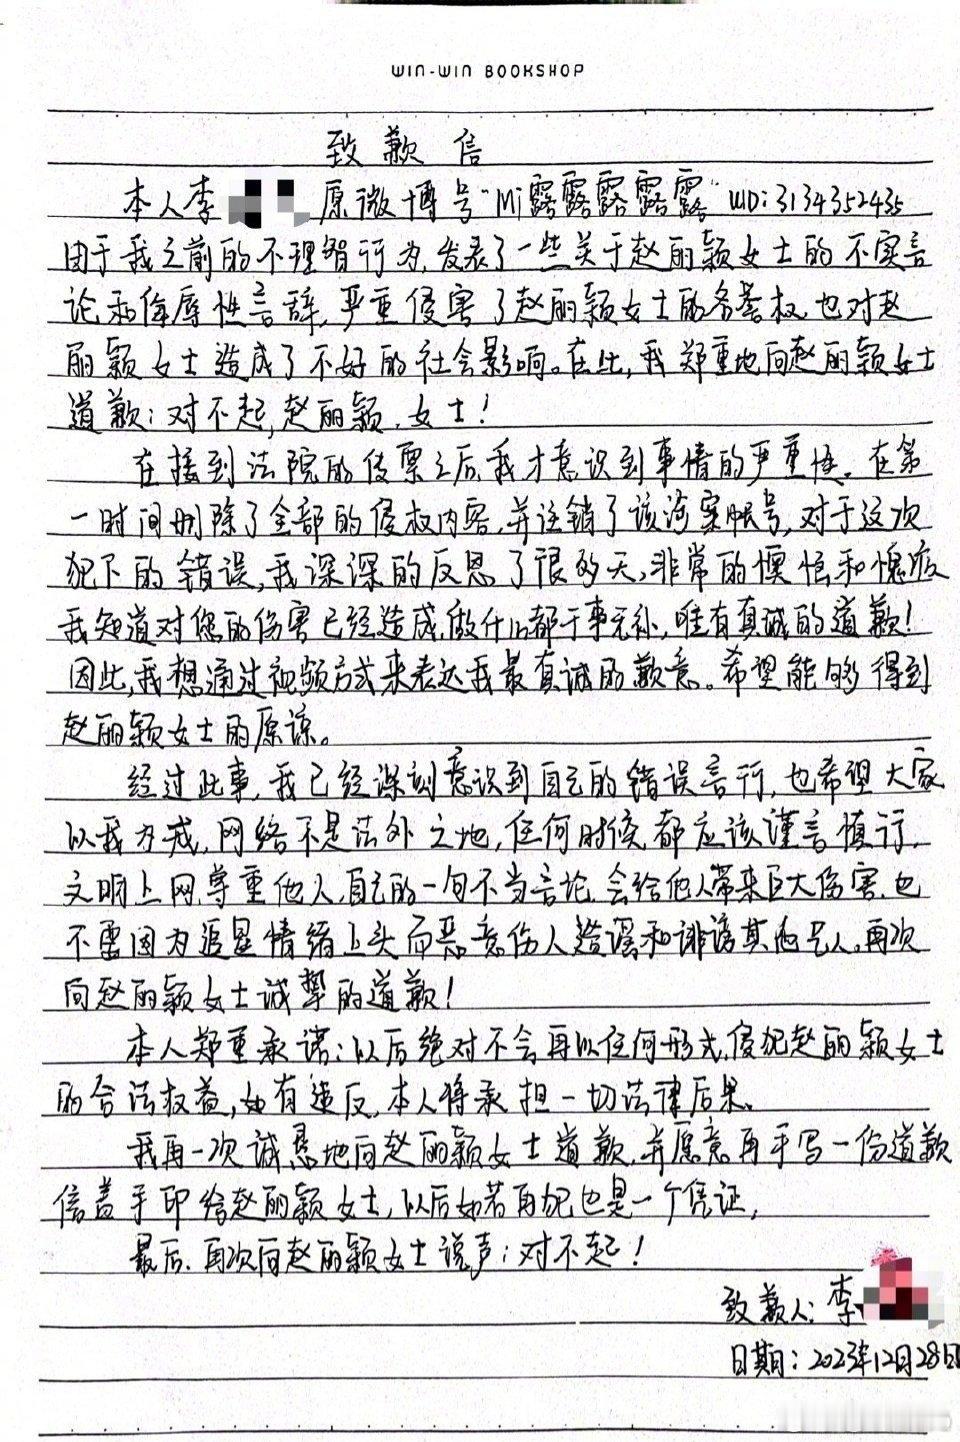 WIN-WIN BOOKSHOP
致歉信
本人李 原微博号"Mi露露露露露"UID:3134352435
由于我之前的不理智行为,发表了一些关于赵丽颖女士的不实言
论和侮辱性言辞,严重侵害了赵丽颖女士的名誉权,也对赵
丽颖女士造成了不好的社会影响。在此,我郑重地向赵丽颖女士
道歉:对不起,赵丽颖.女士!
在接到法院的传票之后,我才意识到事情的严重性。在第
一时间删除了全部的侵权内容,并注销了该涉案账号,对于这次
犯下的错误,我深深的反思了很多天,非常的懊悔和愧疚
我知道对您的伤害已经造成,做什么都于事无补,唯有真诚的道歉!
因此,我想通过视频方式来表达我最真诚的歉意。希望能够得到
赵丽颖女士的原谅。
经过此事,我已经深刻意识到自己的错误言行,也希望大家
以我为戒,网络不是法外之地,任何时候都应该谨言慎行,
文明上网,尊重他人,自己的一句不当言论,会给他人带来巨大伤害,也
不要因为追星情绪上头而恶意伤人,造谣和诽谤其他艺人,再次
向赵丽颖女士诚挚的道歉!
本人郑重承诺:以后绝对不会再以任何形式,侵犯赵丽颖女士
的合法权益,如有违反,本人将承担一切法律后果。
我再一次诚恳地向赵丽颖女士道歉,并愿意再手写一份道歉
信盖手印给赵丽颖女士,以后如若再犯也是一个凭证,
最后.再次向赵丽颖女士说声:对不起!
致歉人:李
日期:2023年12月28日